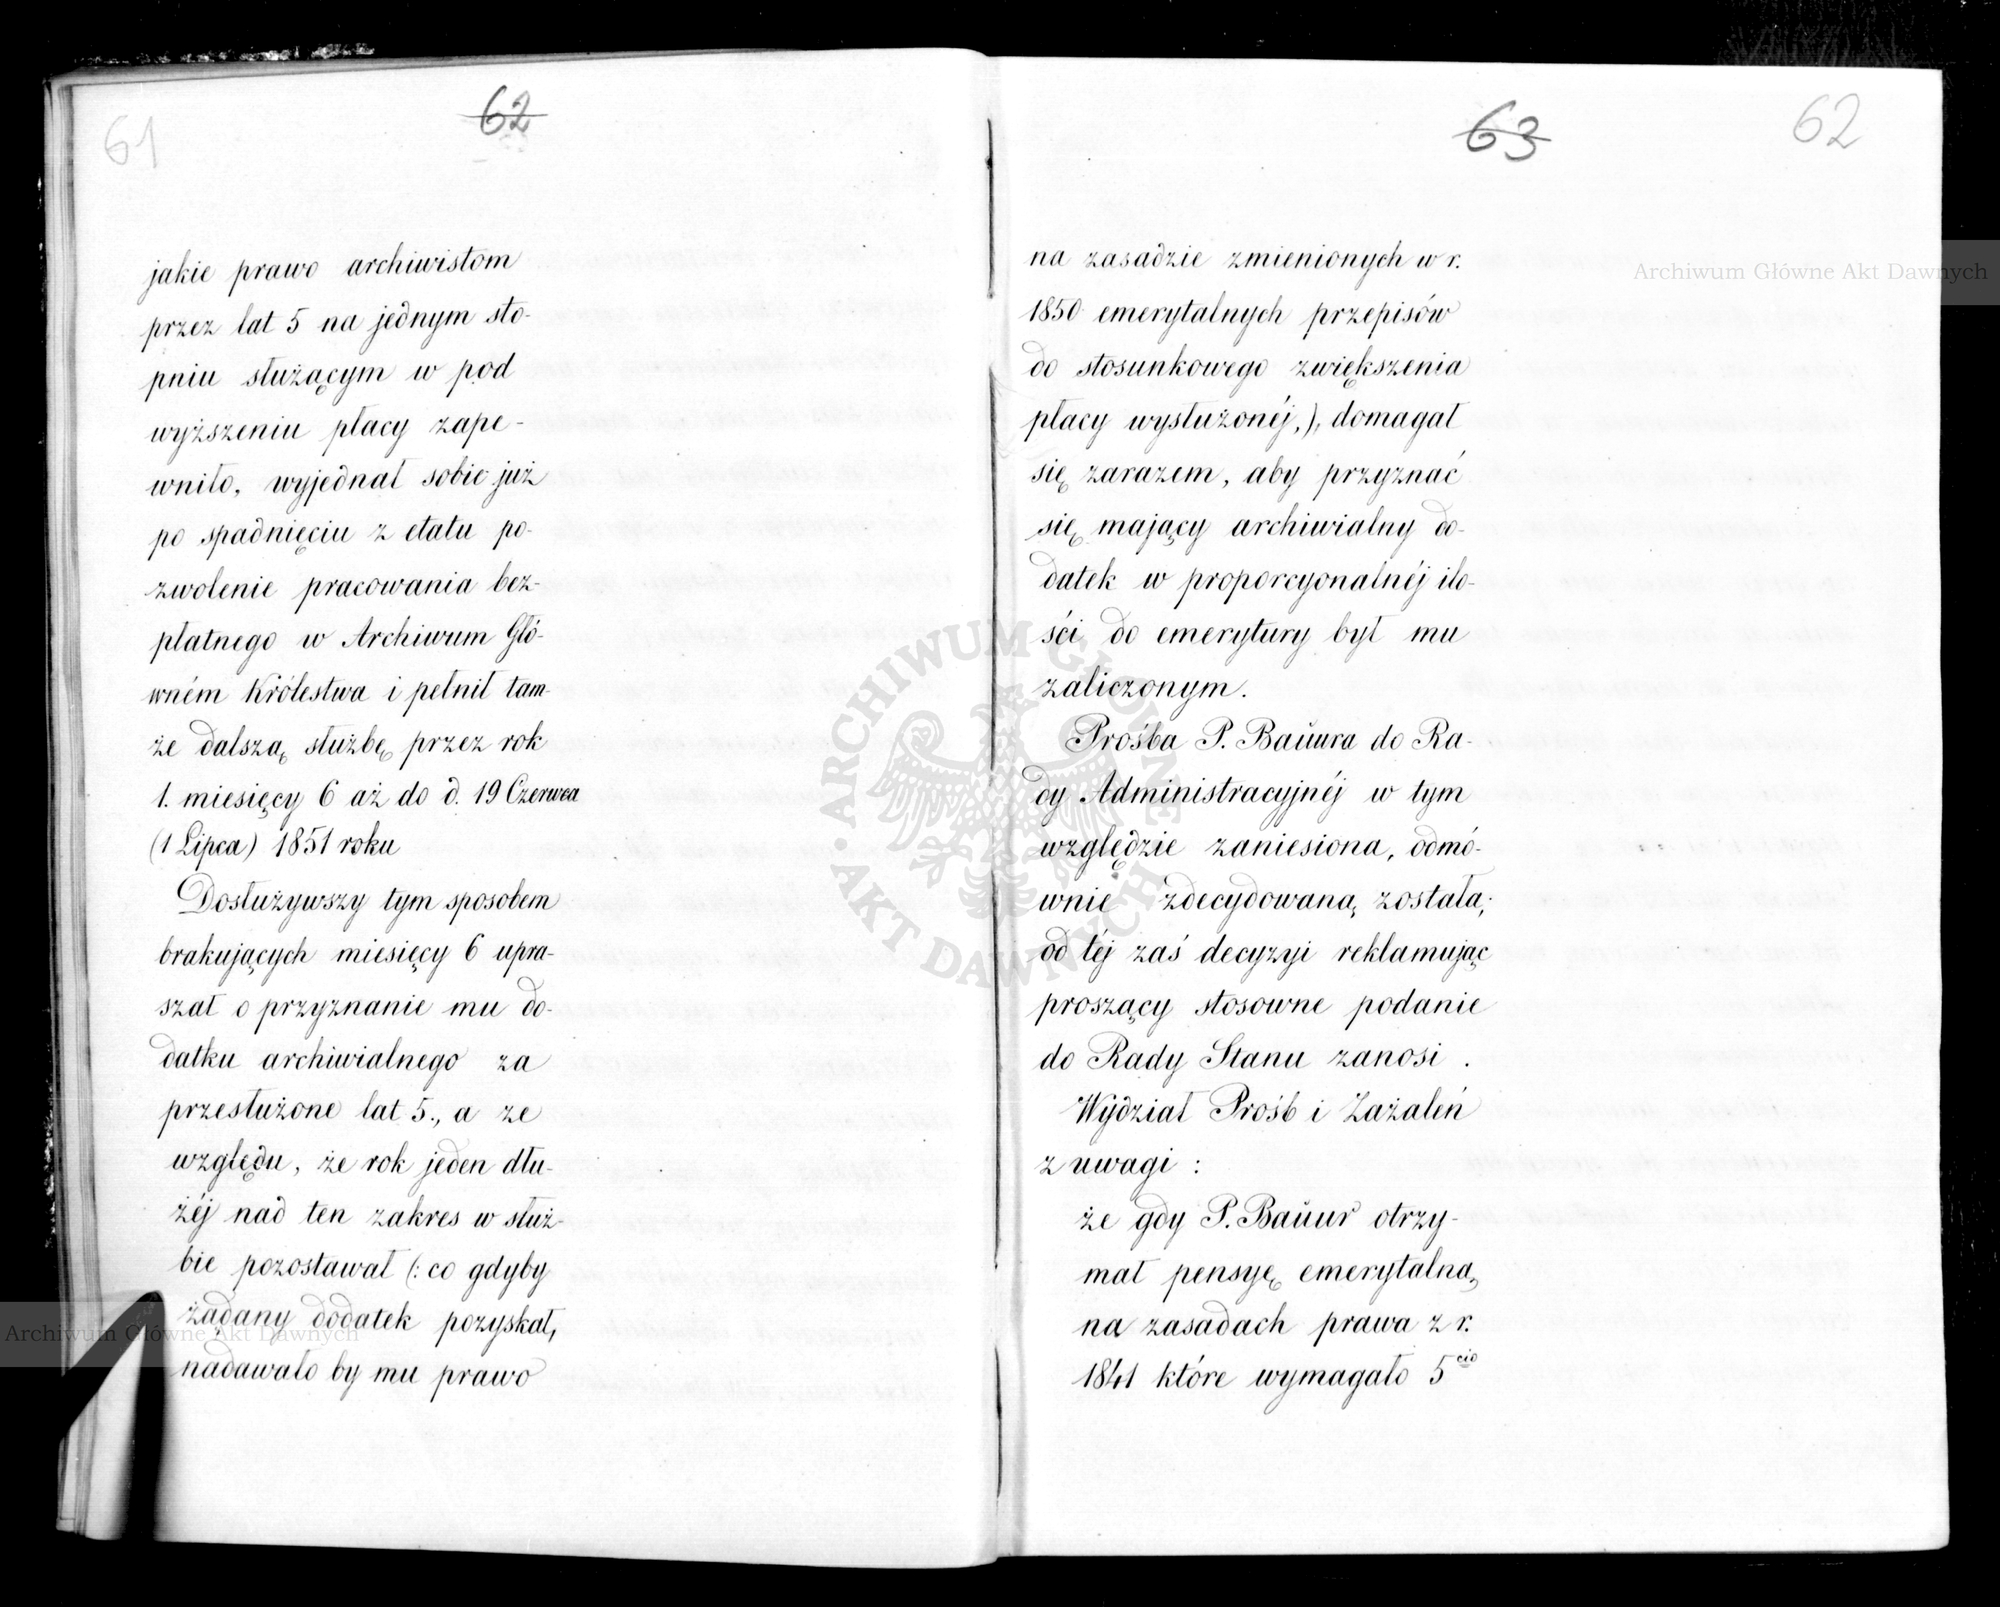 61
62
jakie prawo archiwistom
przez lat 5 na jednym sto-
pniu służącym w pod
wyższeniu płacy zape-
wniło, wyjednał sobie już
po spadnięciu z etatu po-
zwolenie pracowania bez-
płatnego w Archiwum Głó-
wném Królestwa i pełnił tam-
że dalszą służbę przez rok
1. miesięcy 6 aż do d. 19 Czerwca
(1 Lipca) 1851 roku
Dosłużywszy tym sposobem
brakujących miesięcy 6 upra-
szał o przyznanie mu do-
datku archiwialnego za
przesłużone lat 5., a ze
względu, że rok jeden dłu-
żéj nad ten zakres w służ-
bie pozostawał (: co gdyby
żądany dodatek pozyskał,
nadawało by mu prawo
63
62
na zasadzie zmienionych w r.
1850 emerytalnych przepisów
do stosunkowego zwiększenia
płacy wysłużonéj,), domagał
się zarazem, aby przyznać
się mający archiwialny do-
datek w proporcyonalnéj ilo-
ści do emerytury był mu
zaliczonym.
Prośba P. Baŭura do Ra-
dy Administracyjnéj w tym
względzie zaniesiona, odmó-
wnie zdecydowaną została;
od téj zaś decyzyi reklamując
proszący stosowne podanie
do Rady Stanu zanosi.
Wydział Prośb i Zażaleń
z uwagi :
że gdy P. Baŭur otrzy-
mał pensyę emerytalną
na zasadach prawa z r.
1841 które wymagało 5cio
Archiwum Główne Akt Dawnych
Archiwum Główne Akt Dawnych
ARCHIWUM GŁÓWNE AKT DAWNYCH